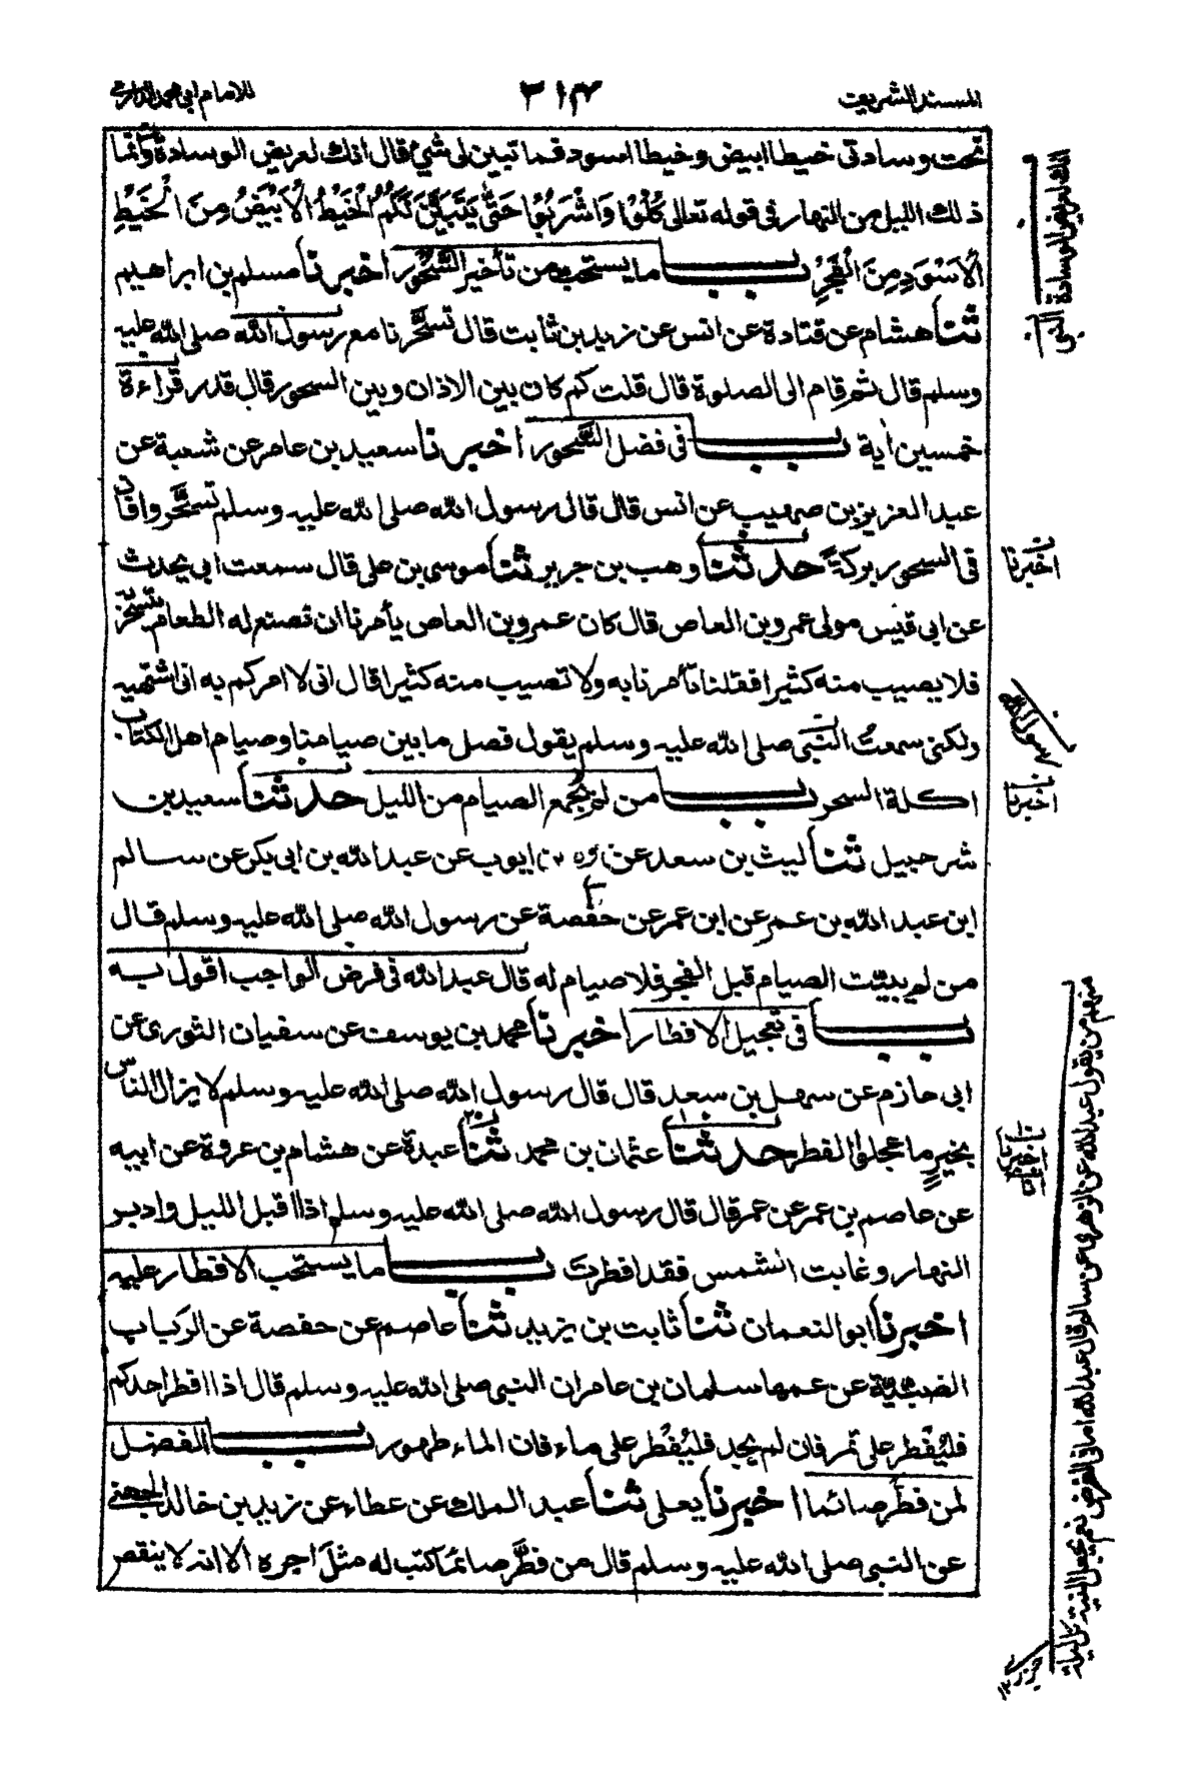 المسند الشريف
٣١٤
للامام ابى محمد الدارمى
تحت وسادتى خيطا ابيض وخيطا اسود فما تبين لى شئ قال انك لعريض الوسادة وانما
ذلك الليل من النهار فى قوله تعالى كُلُوْا وَاشْرَبُوْا حَتّٰى يَتَبَيَّنَ لَكُمُ الْخَيْطُ الْاَبْيَضُ مِنَ الْخَيْطِ
الْاَسْوَدِ مِنَ الْفَجْرِ باب ما يستحب من تأخير السُّحُور اخبرنا مسلم بن ابراهيم
ثنا هشام عن قتادة عن انس عن زيد بن ثابت قال تسحَّرنا مع رسول الله صلى الله عليه
وسلم قال ثم قام الى الصلوة قال قلت كم كان بين الاذان وبين السحور قال قدر قراءة
خمسين اية باب فى فضل السُّحور اخبرنا سعيد بن عامر عن شعبة عن
عبد العزيز بن صهيب عن انس قال قال رسول الله صلى الله عليه وسلم تسحَّروا فان
فى السحور بركةً حدثنا وهب بن جرير ثنا موسى بن على قال سمعت ابى يحدث
عن ابى قيس مولى عمرو بن العاص قال كان عمرو بن العاص يأمرنا ان نصنع له الطعام يتسحّر
فلا يصيب منه كثيرا فقلنا تأمرنا به ولا تصيب منه كثيرا قال انى لا امركم به انى اشتهيه
ولكنى سمعتُ النَّبى صلى الله عليه وسلم يقول فصل ما بين صيامنا وصيام اهل الكتاب
اكلة السحر باب من لم يُجمع الصيام من الليل حدثنا سعيد بن
شرحبيل ثنا ليث بن سعد عن ايوب عن عبد الله بن ابى بكر عن سالم
ابن عبد الله بن عمر عن ابن عمر عن حفصة عن رسول الله صلى الله عليه وسلم قال
من لم يبيّت الصيام قبل الفجر فلا صيام له قال عبد الله فى فرض الواجب اقول به
باب فى تعجيل الافطار اخبرنا محمد بن يوسف عن سفيان الثورى عن
ابى حازم عن سهل بن سعد قال قال رسول الله صلى الله عليه وسلم لا يزال الناس
بخيرٍ ما عجلوا الفطر حدثنا عثمان بن محمد ثنا عبدة عن هشام بن عروة عن ابيه
عن عاصم بن عمر عن عمر قال قال رسول الله صلى الله عليه وسلم اذا اقبل الليل وادبر
النهار وغابت الشمس فقد افطرتَ باب ما يستحب الافطار عليه
اخبرنا ابو النعمان ثنا ثابت بن يزيد ثنا عاصم عن حفصة عن الرباب
الضبيّة عن عمها سلمان بن عامر ان النبى صلى الله عليه وسلم قال اذا افطر احدكم
فليُفطر على تمر فان لم يجد فليُفطر على ماء فان الماء طهور باب الفضل
لمن فطَّر صائما اخبرنا يعلى ثنا عبد الملك عن عطاء عن زيد بن خالد الجهنى
عن النبى صلى الله عليه وسلم قال من فطَّر صائمًا كتب له مثل اجره الا انه لا ينقص
اخبرنا
رسول الله
اخبرنا
اخبرنا